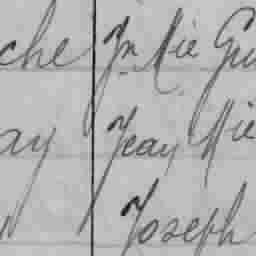 che Jn Mie Gu
ay Jean Mie
Joseph